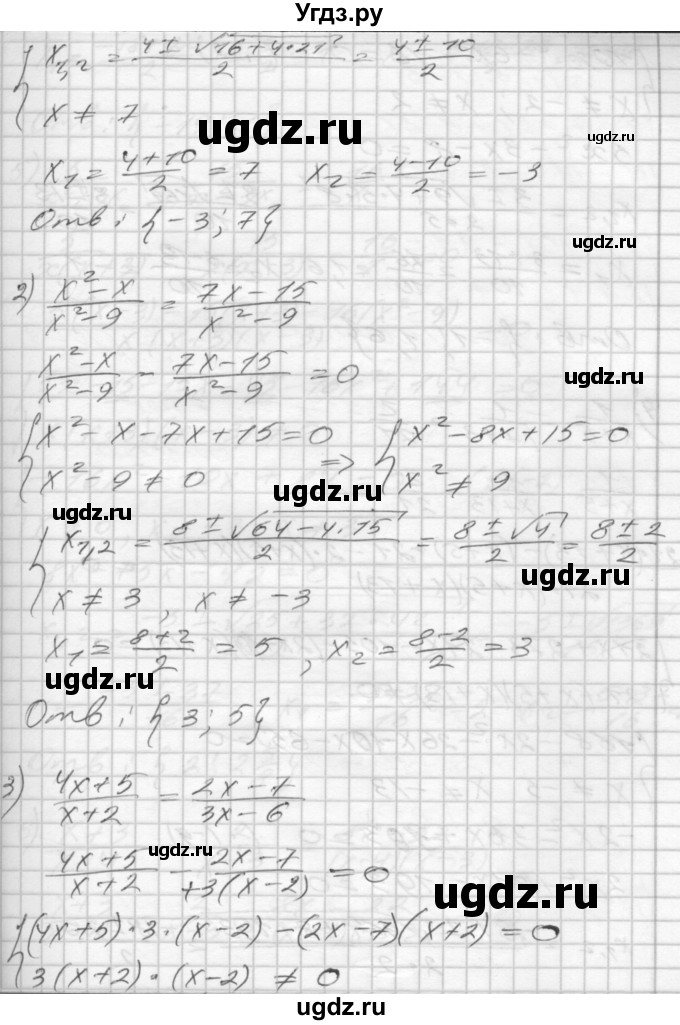 Угдз.ру
{ x₁,₂ = (4 ± √(16+4·21))/2 = (4 ± 10)/2
ugdz.ru
x ≠ 7
ugdz.ru
ugdz.ru
x₁ = (4+10)/2 = 7   x₂ = (4−10)/2 = −3
Отв: {−3; 7}
ugdz.ru
2) (x²−x)/(x²−9) = (7x−15)/(x²−9)
(x²−x)/(x²−9) − (7x−15)/(x²−9) = 0
ugdz.ru
{ x²−x−7x+15=0 ⇒ { x²−8x+15=0
x²−9≠0   x²≠9
ugdz.ru
ugdz.ru
{ x₁,₂ = (8 ± √(64−4·15))/2 = (8 ± √4)/2 = (8 ± 2)/2
ugdz.ru
x ≠ 3, x ≠ −3
x₁ = (8+2)/2 = 5, x₂ = (8−2)/2 = 3
ugdz.ru
Отв: {3; 5}
3) (4x+5)/(x+2) = (2x−7)/(3x−6)
ugdz.ru
(4x+5)/(x+2) − (2x−7)/(+3(x−2)) = 0
ugdz.ru
{ (4x+5)·3·(x−2)−(2x−7)(x+2)=0
3(x+2)·(x−2) ≠ 0
ugdz.ru